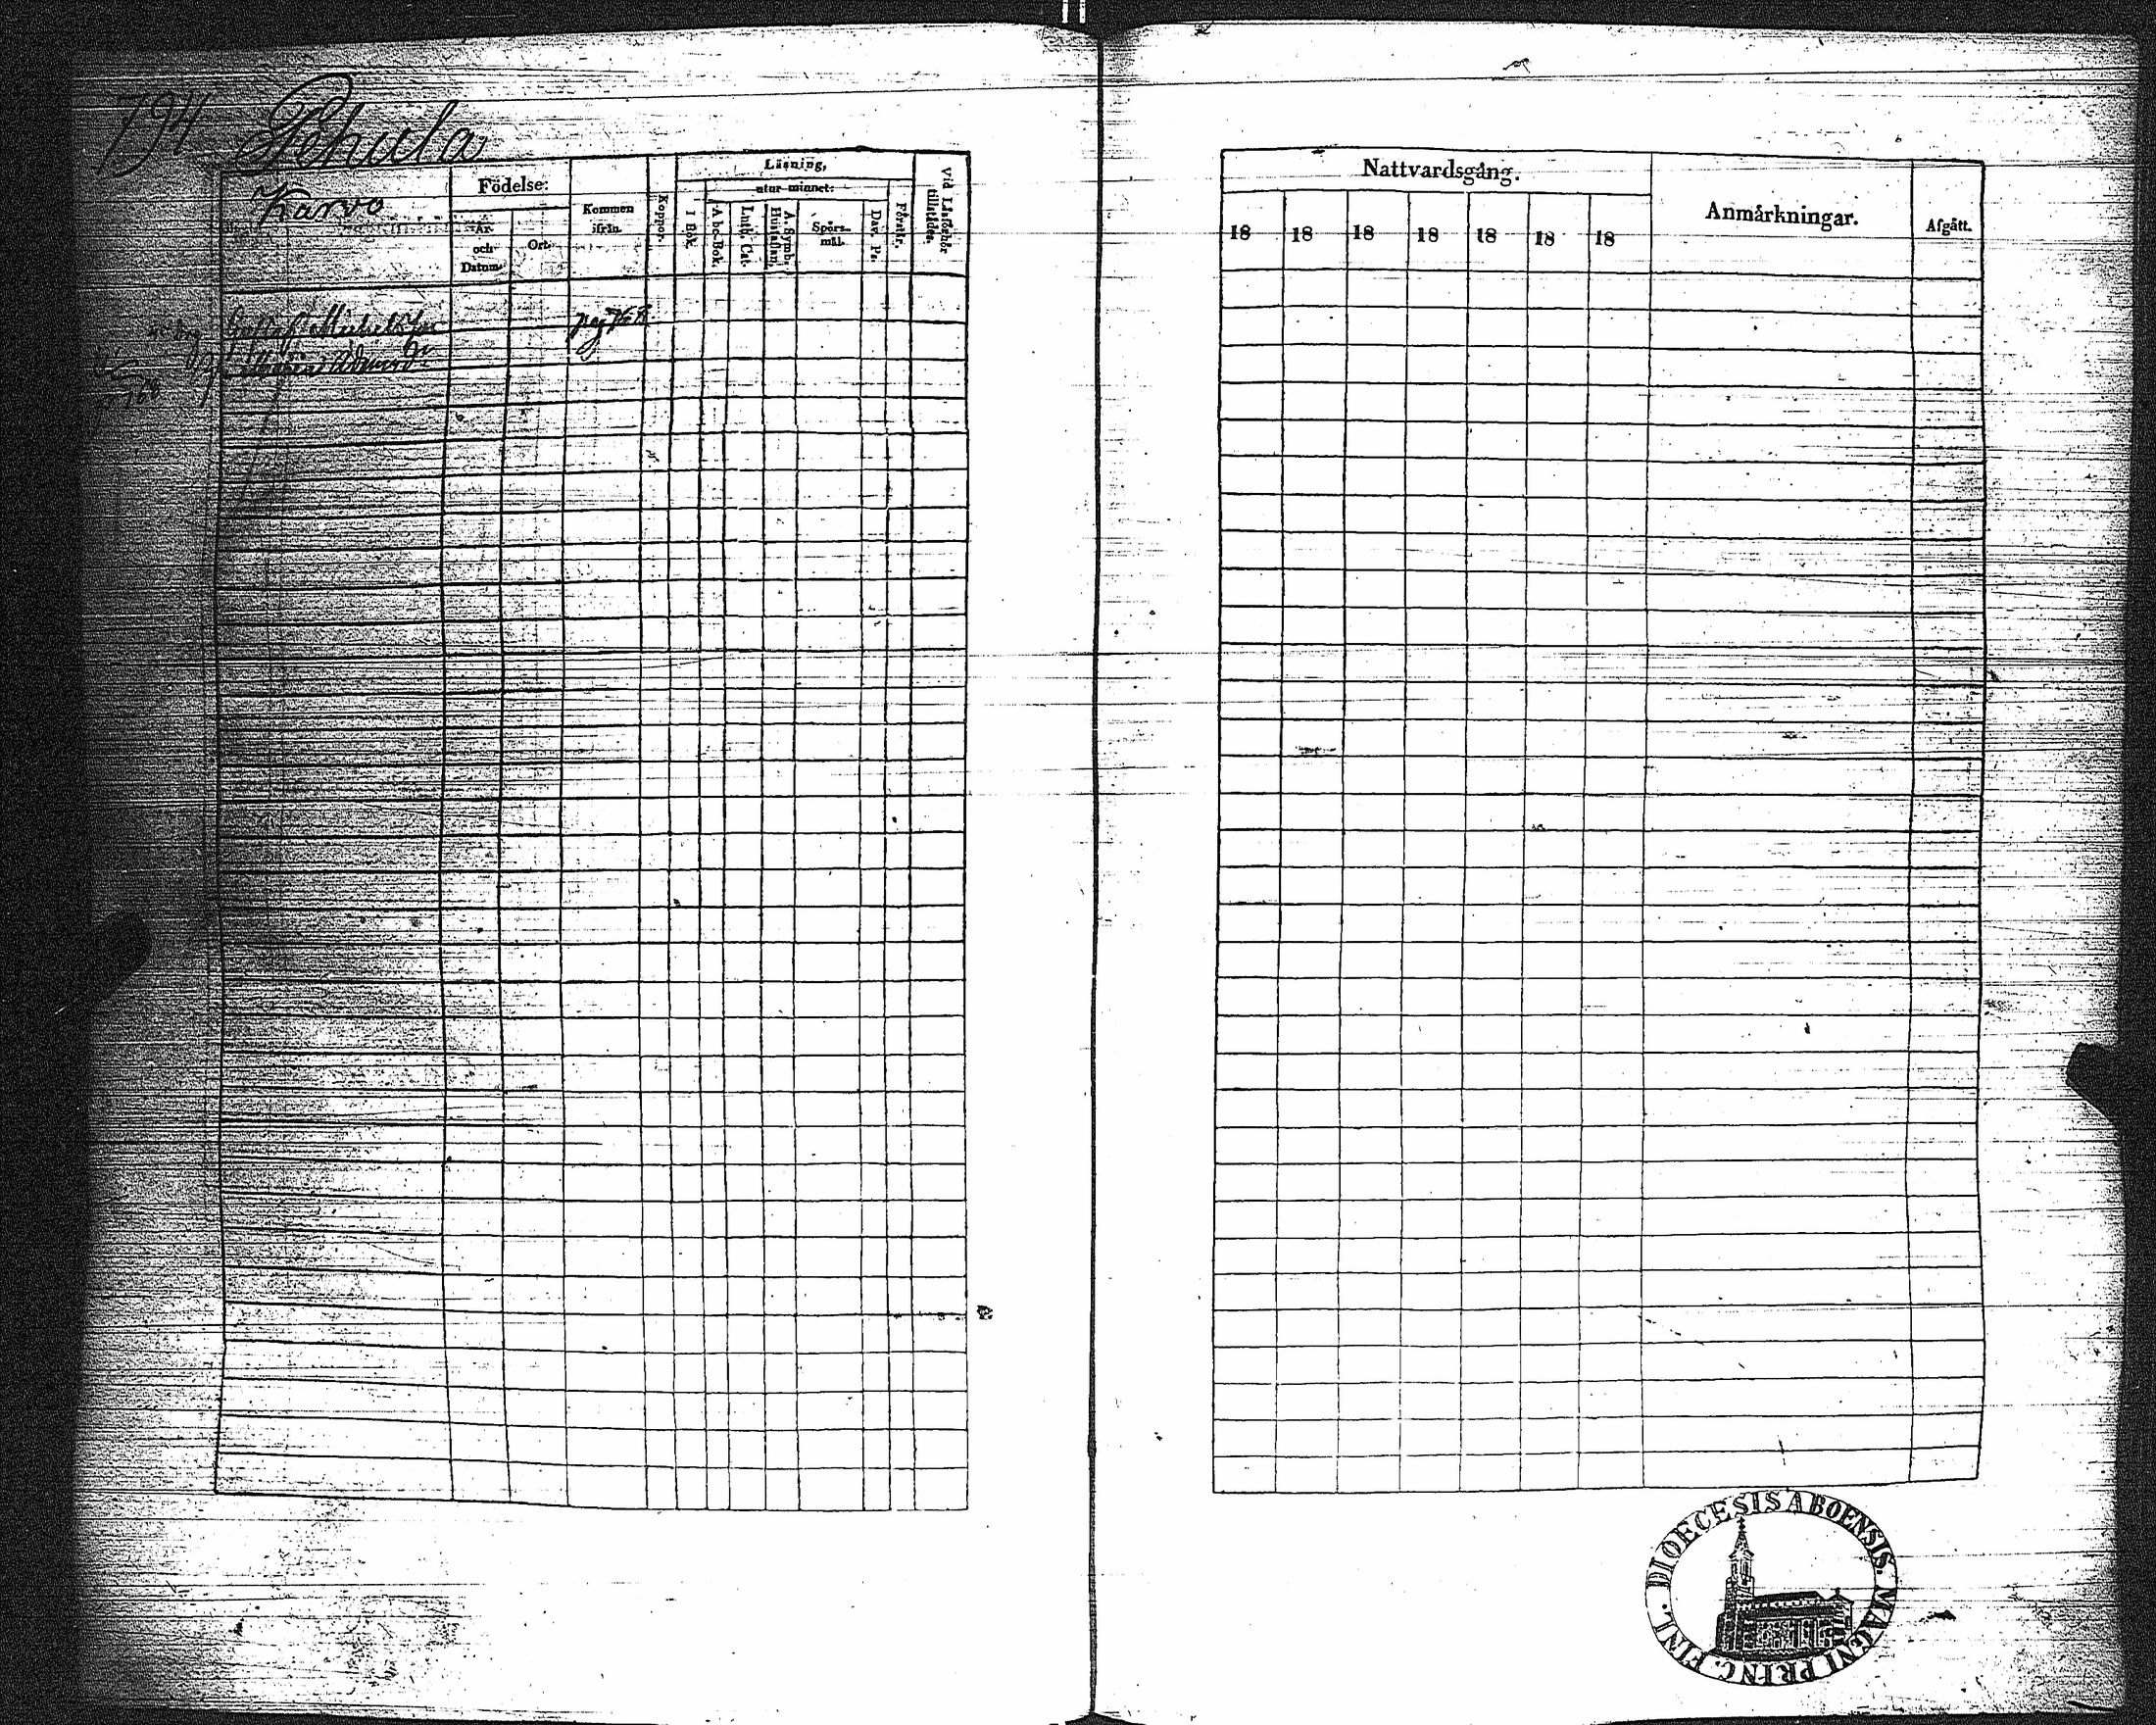 794 Pehula
Karvo
Födelse:
År
och
Datum
Ort.
Kommen
ifrån.
Koppor.
Läsning,
utur minnet:
I Bok.
Abc-Bok.
Luth. Cat.
A. Symb.
Hustaflan.
Spörs-
mål.
Dav. Ps.
Förstår.
Vid Läsförhör
tillstädes.
Michelsson
Maria
Nattvardsgång.
18 18 18 18 18 18 18
Anmärkningar.
Afgått.
DIOECESIS ABOENSIS. MAGNI PRINC. FINL.